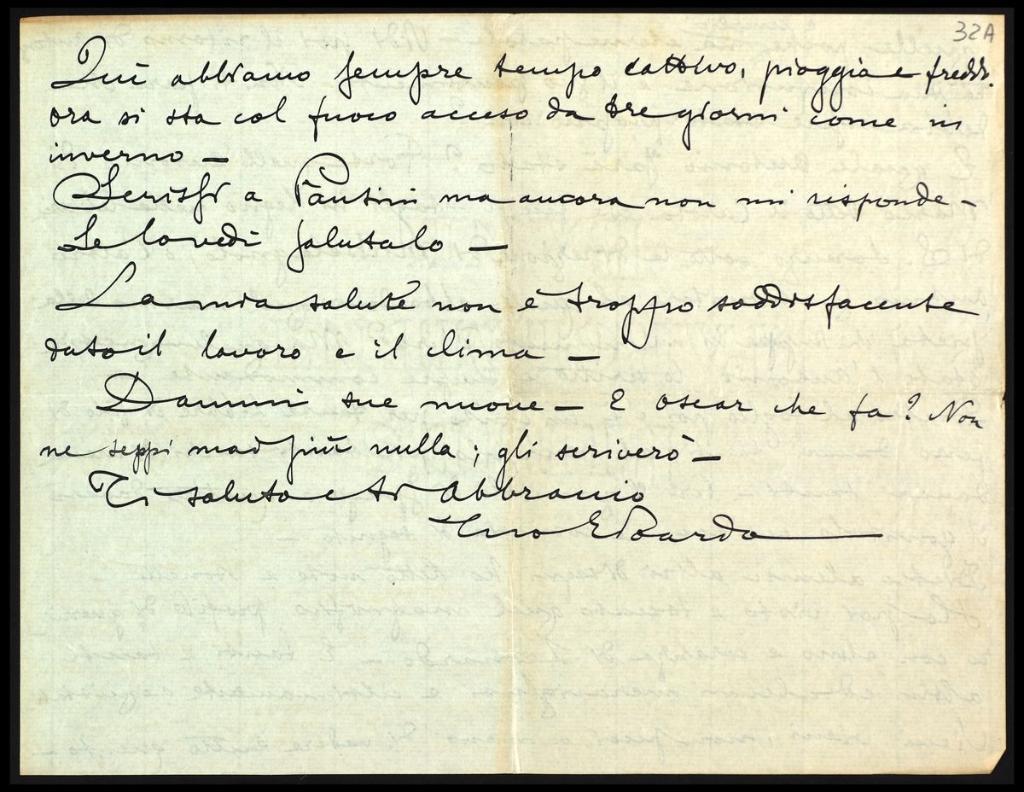 32A
Quì abbiamo sempre tempo cattivo, pioggia e freddo.
ora si sta col fuoco acceso da tre giorni come in
inverno —
Scrissi a Fantini ma ancora non mi risponde —
Se lo vedi salutalo —
La mia salute non è troppo soddisfacente
dato il lavoro e il clima —
Dammi tue nuove — E Oscar che fa? Non
ne seppi mai più nulla; gli scriverò —
Ti saluto e ti abbraccio
tuo Edoardo